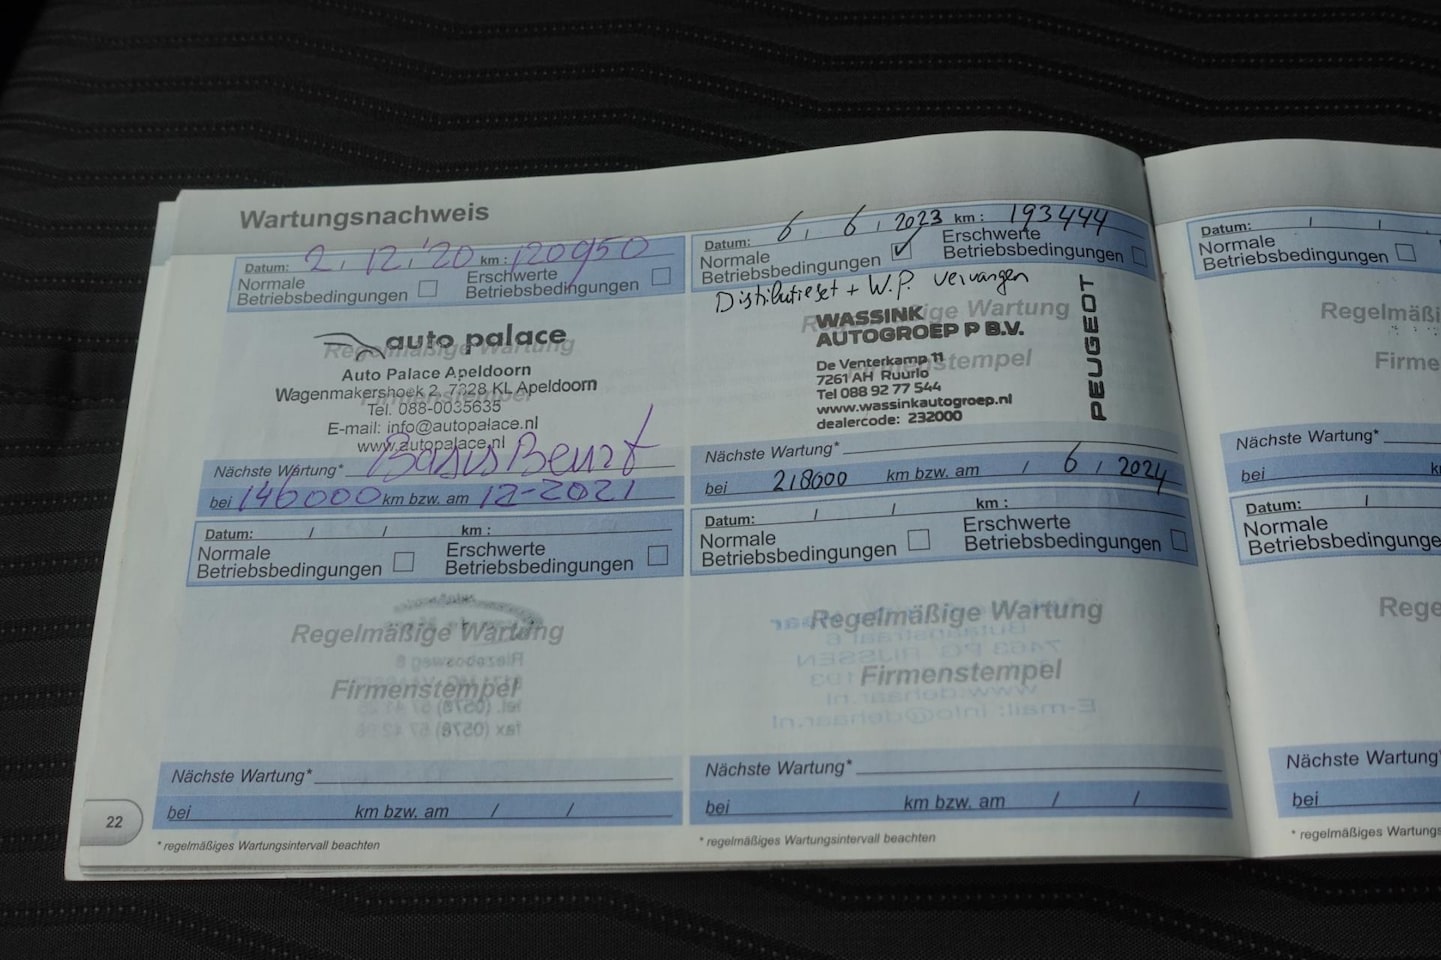 Wartungsnachweis
Datum: 2, 12, '20 km: 120950
Normale
Betriebsbedingungen
Erschwerte
Betriebsbedingungen
auto palace
Regelmäßige Wartung
Auto Palace Apeldoorn
Wagenmakershoek 2, 7328 KL Apeldoorn
Firmenstempel
Tel. 088-0035635
E-mail: info@autopalace.nl
www.autopalace.nl
Nächste Wartung* Basis Beurt
bei 146000 km bzw. am 12-2021
Datum: / / km:
Normale
Betriebsbedingungen
Erschwerte
Betriebsbedingungen
Regelmäßige Wartung
Firmenstempel
Nächste Wartung*
bei km bzw. am / /
22
* regelmäßiges Wartungsintervall beachten
Datum: 6, 6, 2023 km: 193444
Normale
Betriebsbedingungen
Erschwerte
Betriebsbedingungen
Distributieset + W.P. vervangen
Regelmäßige Wartung
WASSINK
AUTOGROEP P B.V.
PEUGEOT
Firmenstempel
De Venterkamp 11
7261 AH Ruurlo
Tel 088 92 77 544
www.wassinkautogroep.nl
dealercode: 232000
Nächste Wartung*
bei 218600 km bzw. am / 6 / 2024
Datum: / / km:
Normale
Betriebsbedingungen
Erschwerte
Betriebsbedingungen
Regelmäßige Wartung
Firmenstempel
Nächste Wartung*
bei km bzw. am / /
* regelmäßiges Wartungsintervall beachten
Datum: / /
Normale
Betriebsbedingungen
Regelmäßi
Firme
Nächste Wartung*
bei k
Datum: /
Normale
Betriebsbedingunge
Rege
Nächste Wartung*
bei
* regelmäßiges Wartungs